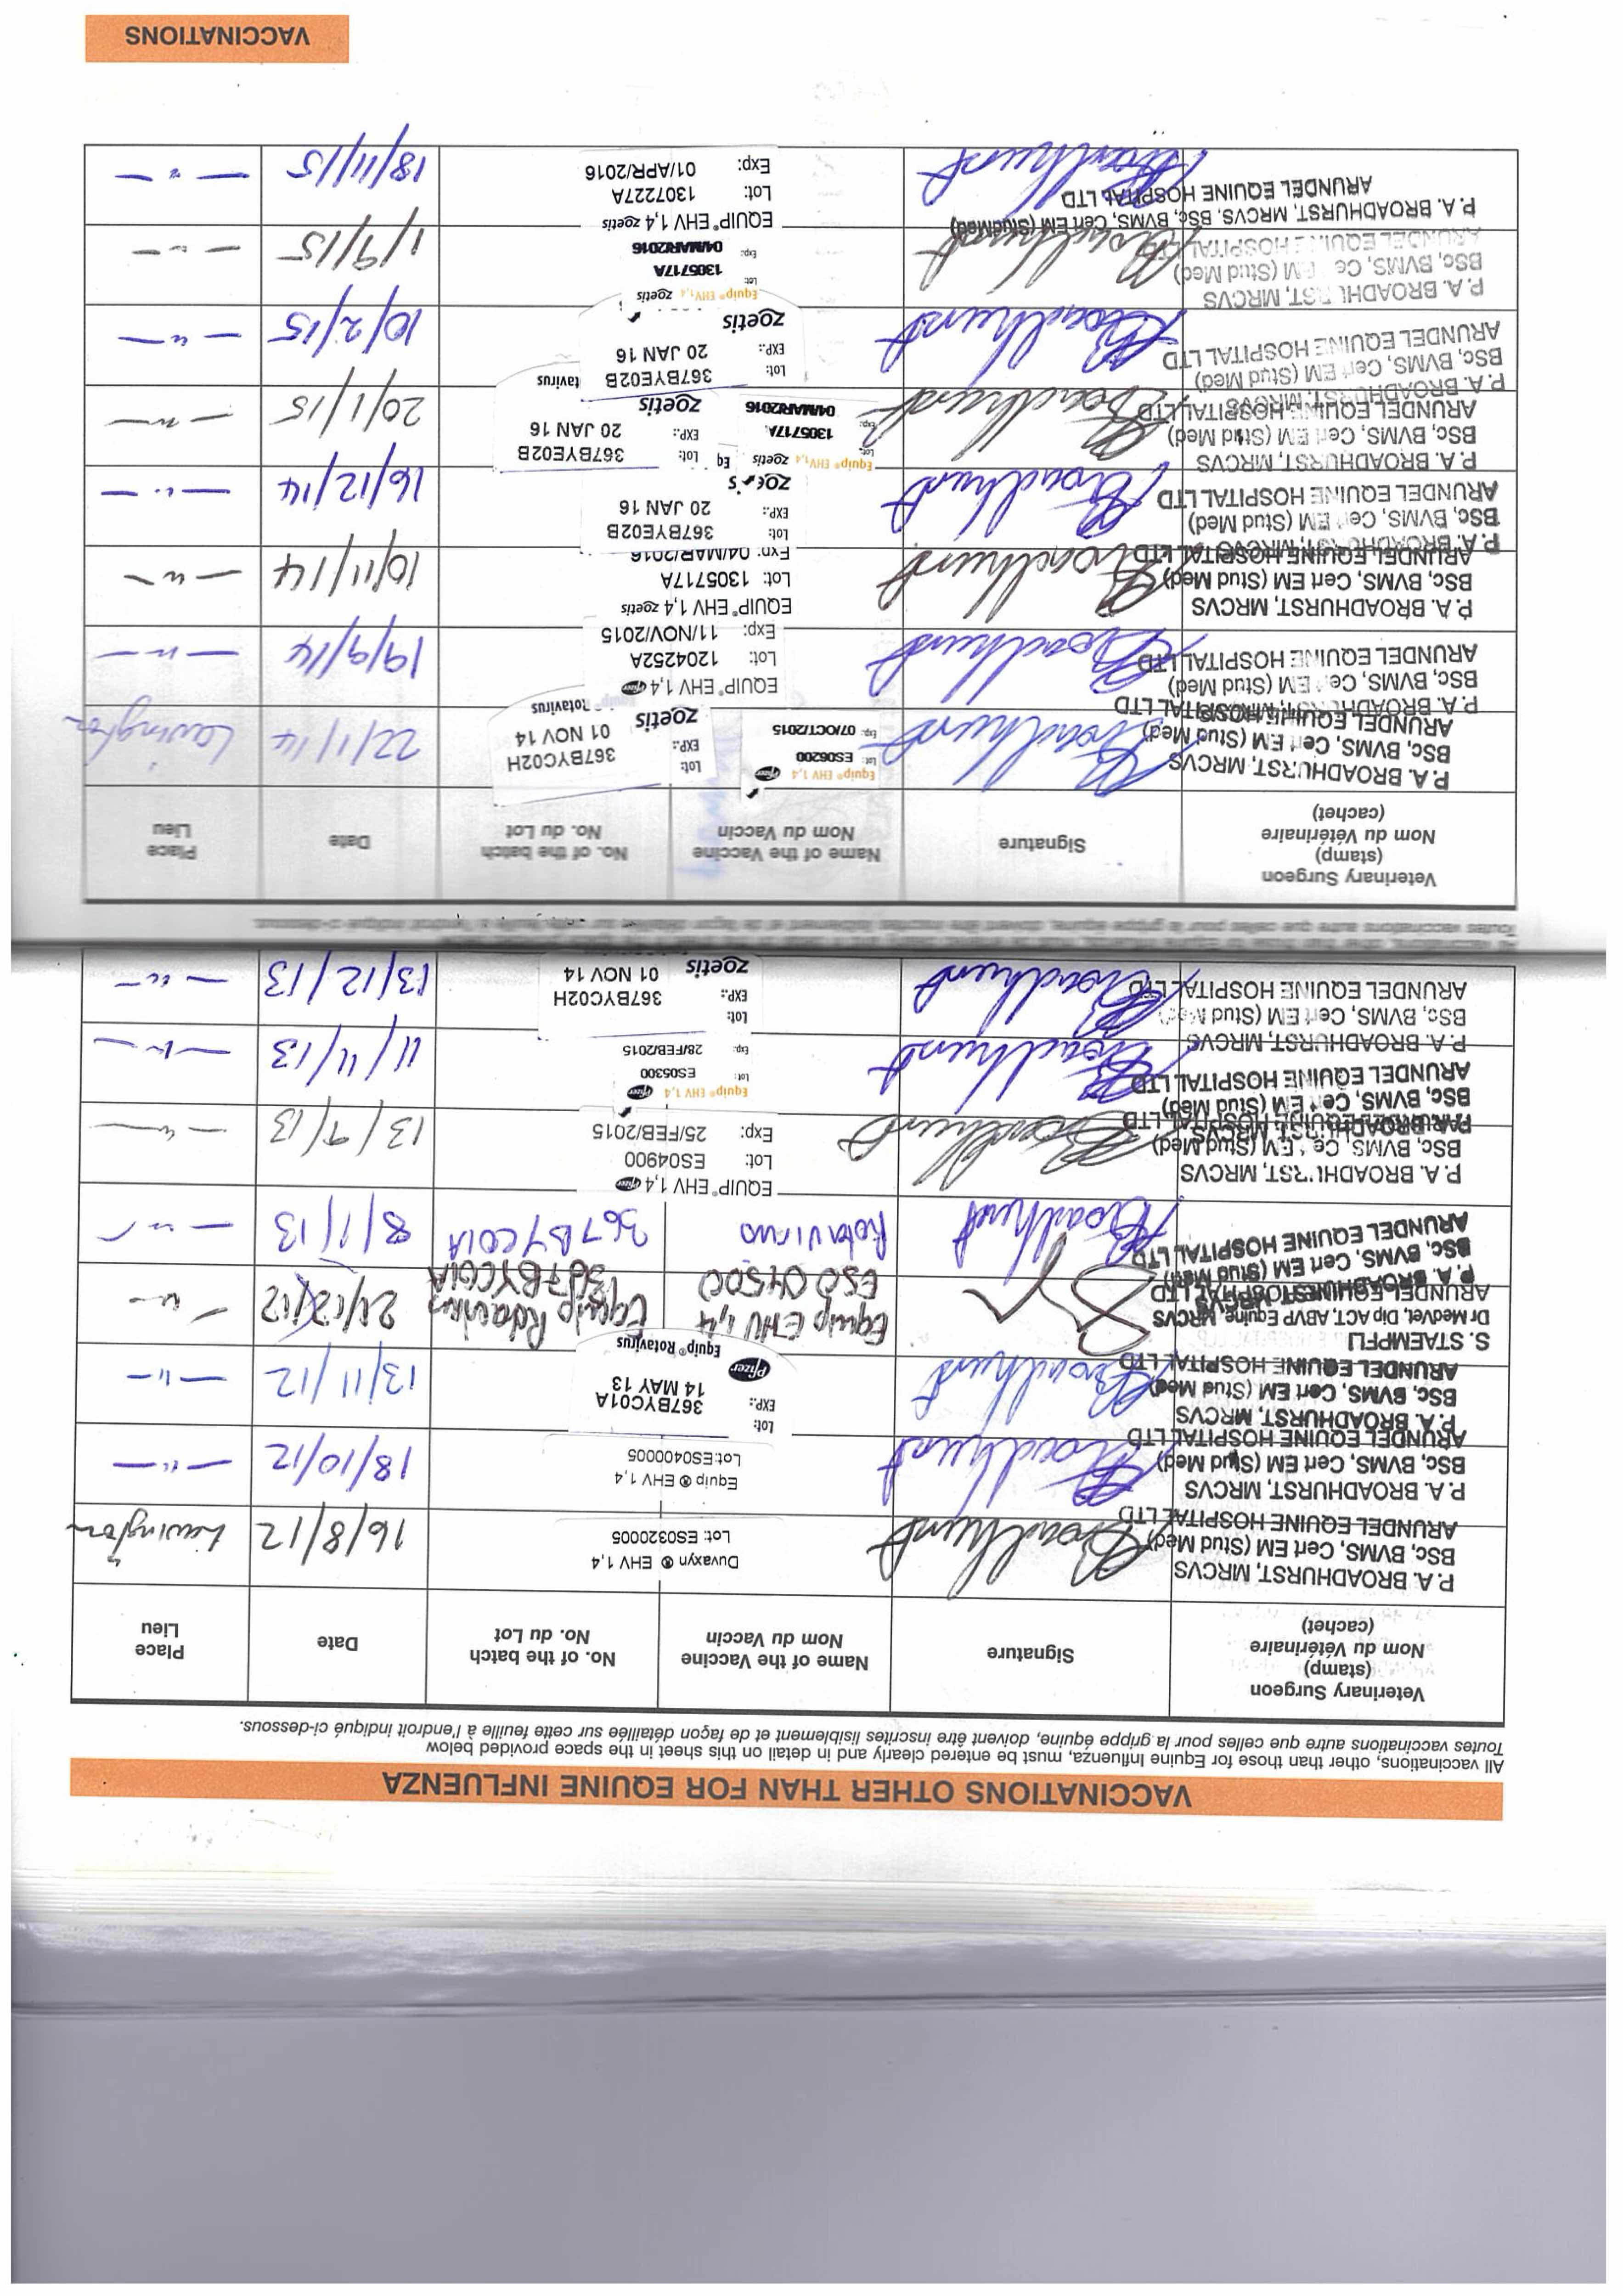 VACCINATIONS OTHER THAN FOR EQUINE INFLUENZA
All vaccinations, other than those for Equine Influenza, must be entered clearly and in detail on this sheet in the space provided below
Toutes vaccinations autre que celles pour la grippe équine, doivent être inscrites lisiblement et de façon détaillée sur cette feuille à l'endroit indiqué ci-dessous.
Veterinary Surgeon
(stamp)
Nom du Vétérinaire
(cachet)
Signature
Name of the Vaccine
Nom du Vaccin
No. of the batch
No. du Lot
Date
Place
Lieu
P.A. BROADHURST, MRCVS
BSc, BVMS, Cert EM (Stud Med)
ARUNDEL EQUINE HOSPITAL LTD
Broadhurst
Duvaxyn ® EHV 1,4
Lot: ES0320005
16/8/12
Lavington
P.A. BROADHURST, MRCVS
BSc, BVMS, Cert EM (Stud Med)
ARUNDEL EQUINE HOSPITAL LTD
Broadhurst
Equip ® EHV 1,4
Lot:ES0400005
18/10/12
— " —
P.A. BROADHURST, MRCVS
BSc, BVMS, Cert EM (Stud Med)
ARUNDEL EQUINE HOSPITAL LTD
Broadhurst
Lot: 367BYC01A
EXP.: 14 MAY 13
Pfizer
Equip® Rotavirus
13/11/12
— " —
S. STAEMPFLI
Dr Medvet, Dip ACT, ABVP Equine, MRCVS
ARUNDEL EQUINE HOSPITAL LTD
Equip EHV 1,4
ESO 04500
Equip Rotavirus
367BYC01A
21/12/12
— " —
P.A. BROADHURST, MRCVS
BSc, BVMS, Cert EM (Stud Med)
ARUNDEL EQUINE HOSPITAL LTD
Broadhurst
Rotavirus
367BYC01A
8/1/13
— " —
P.A. BROADHURST, MRCVS
BSc, BVMS, Cert EM (Stud Med)
ARUNDEL EQUINE HOSPITAL LTD
Broadhurst
EQUIP® EHV 1,4 Pfizer
Lot: ES04900
Exp: 25/FEB/2015
13/9/13
— " —
P.A. BROADHURST, MRCVS
BSc, BVMS, Cert EM (Stud Med)
ARUNDEL EQUINE HOSPITAL LTD
Broadhurst
Equip® EHV 1,4 Pfizer
Lot: ES05300
Exp: 28/FEB/2015
11/11/13
— " —
P.A. BROADHURST, MRCVS
BSc, BVMS, Cert EM (Stud Med)
ARUNDEL EQUINE HOSPITAL LTD
Broadhurst
Lot: 367BYC02H
EXP.: 01 NOV 14
zoetis
13/12/13
— " —
Toutes vaccinations autre que celles pour la grippe équine, doivent être inscrites lisiblement et de façon détaillée sur cette feuille à l'endroit indiqué ci-dessous.
Veterinary Surgeon
(stamp)
Nom du Vétérinaire
(cachet)
Signature
Name of the Vaccine
Nom du Vaccin
No. of the batch
No. du Lot
Date
Place
Lieu
P.A. BROADHURST, MRCVS
BSc, BVMS, Cert EM (Stud Med)
ARUNDEL EQUINE HOSPITAL LTD
Broadhurst
Equip® EHV 1,4 Pfizer
Lot: ES06200
Exp: 07/OCT/2015
Lot: 367BYC02H
EXP.: 01 NOV 14
zoetis
Rotavirus
22/1/14
Lavington
P.A. BROADHURST, MRCVS
BSc, BVMS, Cert EM (Stud Med)
ARUNDEL EQUINE HOSPITAL LTD
Broadhurst
EQUIP® EHV 1,4 Pfizer
Lot: 1204252A
Exp: 11/NOV/2015
19/9/14
— " —
P.A. BROADHURST, MRCVS
BSc, BVMS, Cert EM (Stud Med)
ARUNDEL EQUINE HOSPITAL LTD
Broadhurst
EQUIP® EHV 1,4 zoetis
Lot: 1305717A
Exp: 04/MAR/2016
10/11/14
— " —
P.A. BROADHURST, MRCVS
BSc, BVMS, Cert EM (Stud Med)
ARUNDEL EQUINE HOSPITAL LTD
Broadhurst
Lot: 367BYE02B
EXP.: 20 JAN 16
zoetis
16/12/14
— " —
P.A. BROADHURST, MRCVS
BSc, BVMS, Cert EM (Stud Med)
ARUNDEL EQUINE HOSPITAL LTD
Broadhurst
Equip® EHV 1,4 zoetis
Lot: 1305717A
Exp: 04/MAR/2016
Eq
Lot: 367BYE02B
EXP.: 20 JAN 16
zoetis
tavirus
20/1/15
— " —
P.A. BROADHURST, MRCVS
BSc, BVMS, Cert EM (Stud Med)
ARUNDEL EQUINE HOSPITAL LTD
Broadhurst
Lot: 367BYE02B
EXP.: 20 JAN 16
zoetis
10/2/15
— " —
P.A. BROADHURST, MRCVS
BSc, BVMS, Cert EM (Stud Med)
ARUNDEL EQUINE HOSPITAL LTD
Broadhurst
Equip® EHV 1,4 zoetis
Lot: 1305717A
Exp: 04/MAR/2016
1/9/15
— " —
P.A. BROADHURST, MRCVS, BSc, BVMS, Cert EM (StudMed)
ARUNDEL EQUINE HOSPITAL LTD
Broadhurst
EQUIP® EHV 1,4 zoetis
Lot: 1307227A
Exp: 01/APR/2016
18/11/15
— " —
VACCINATIONS